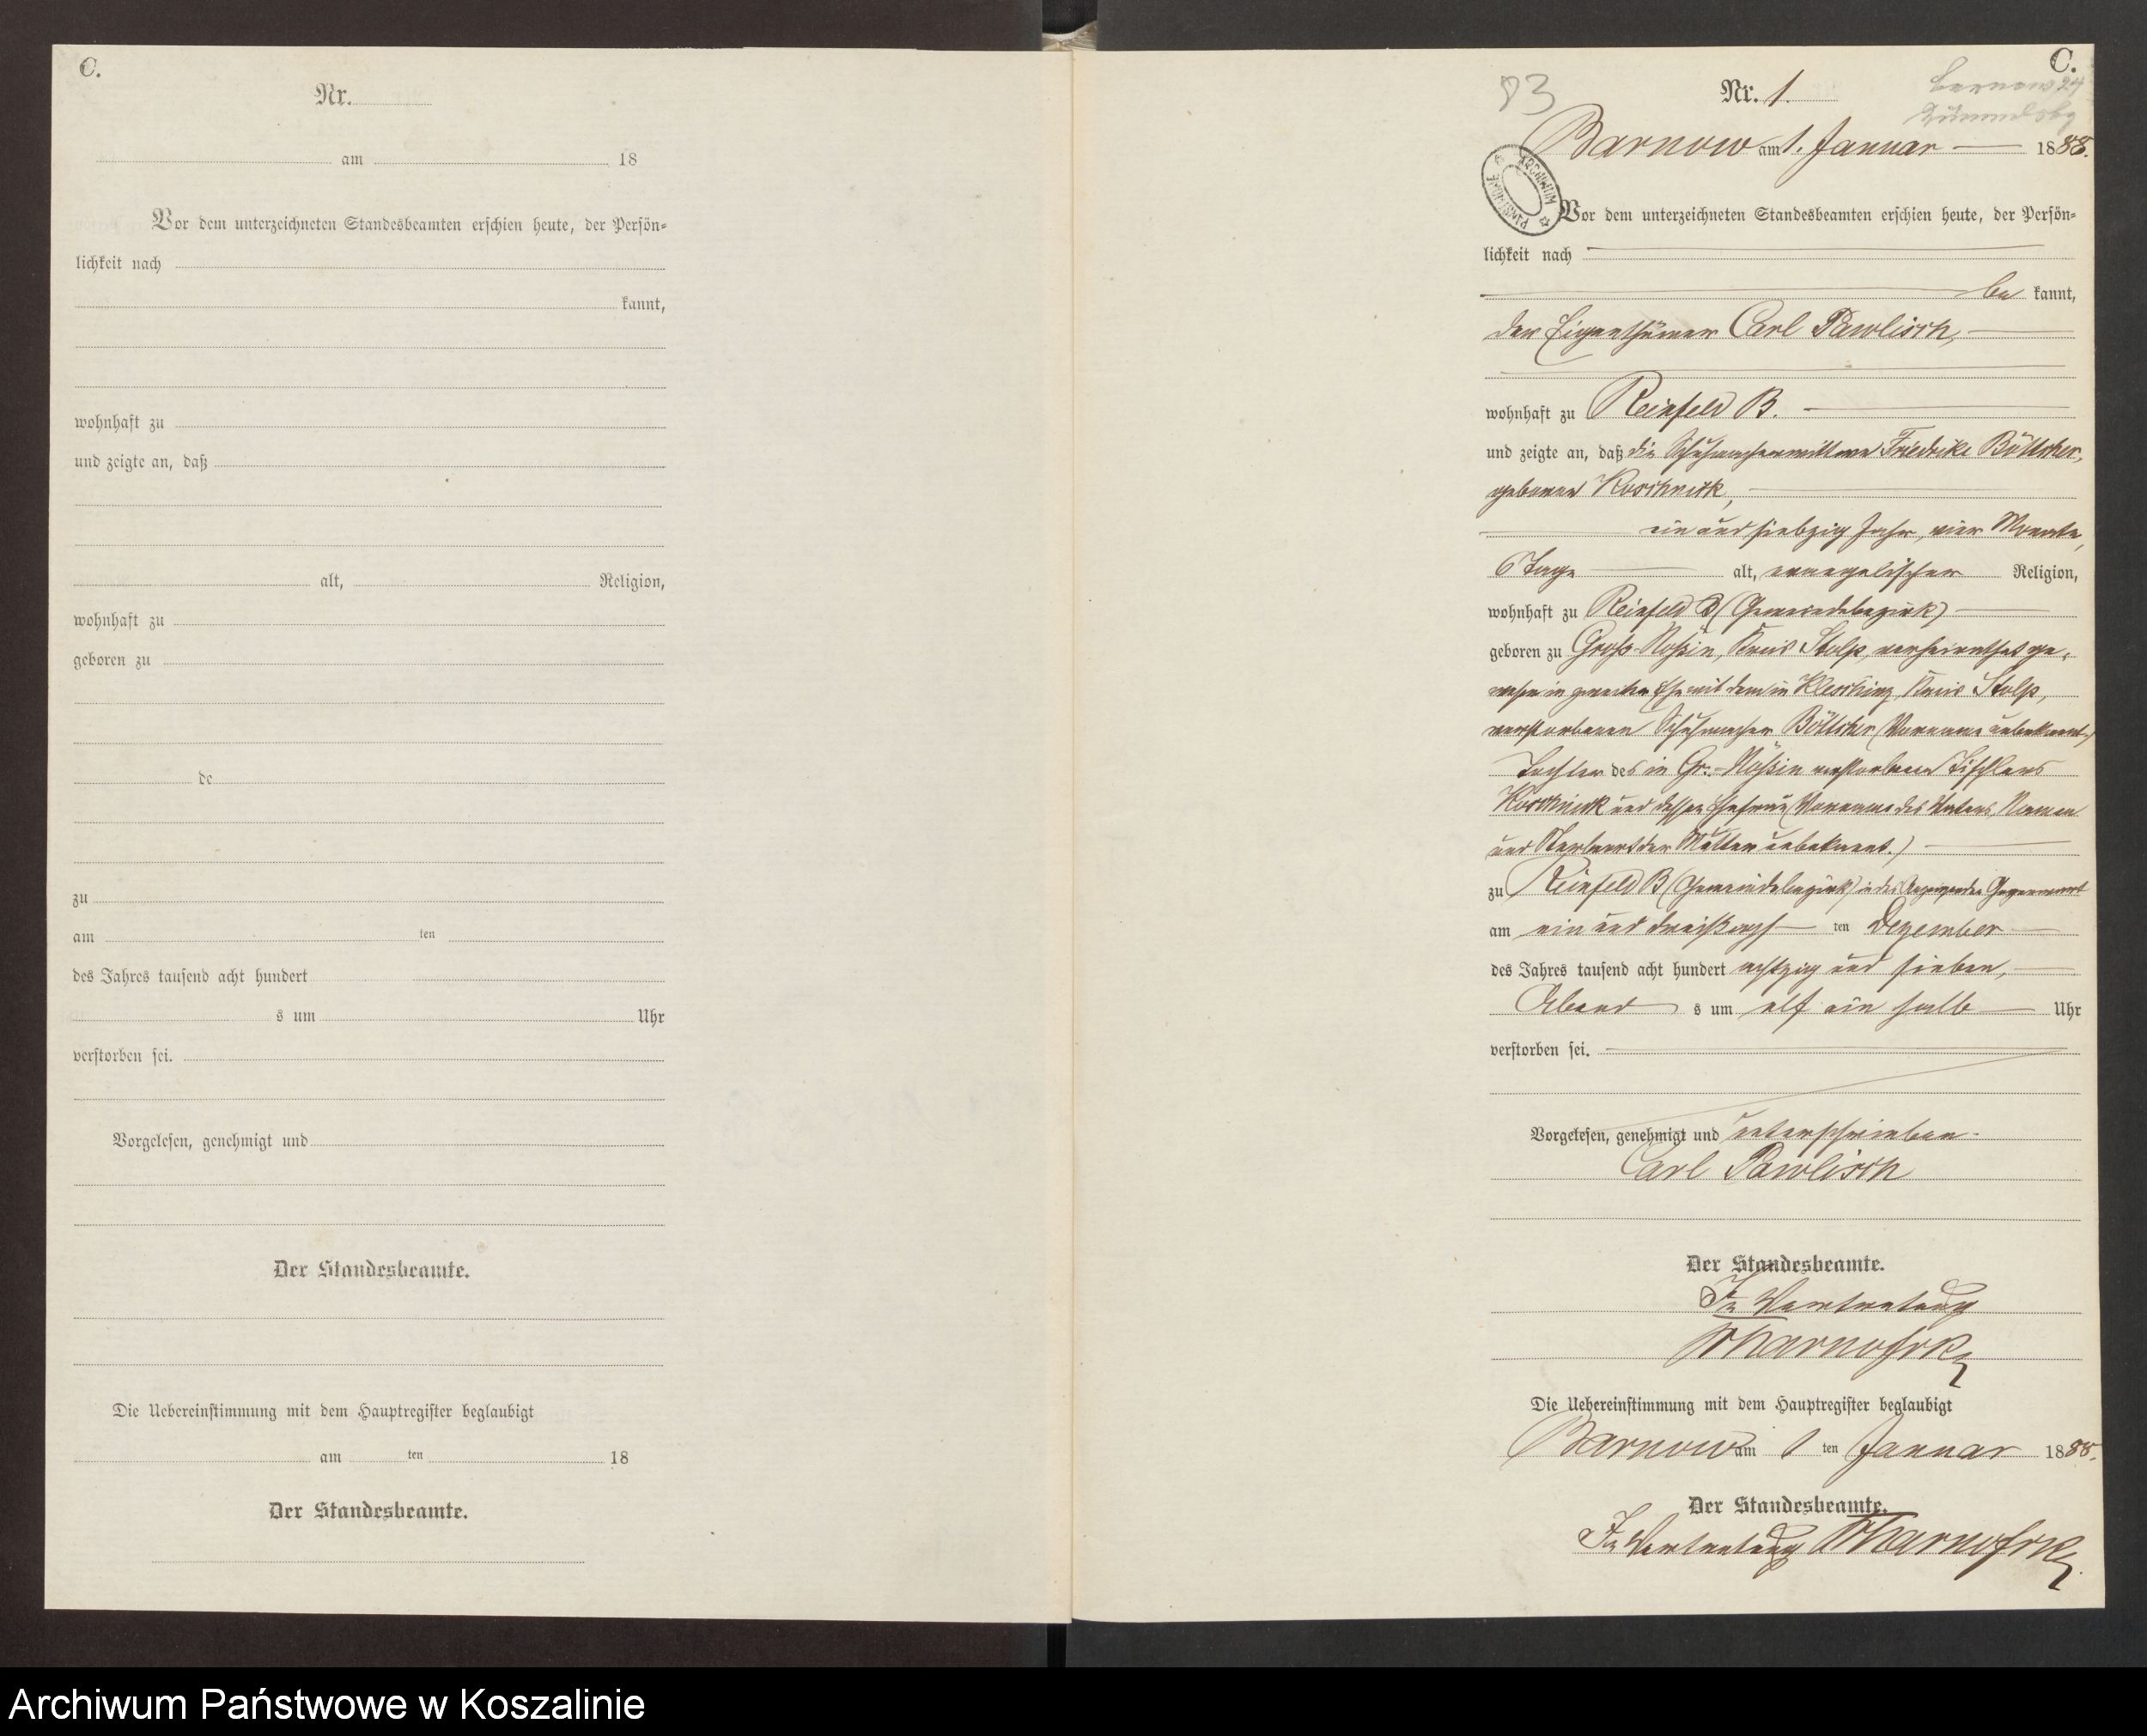 C.
Nr.
am 18
Vor dem unterzeichneten Standesbeamten erschien heute, der Persön=
lichkeit nach
kannt,
wohnhaft zu
und zeigte an, daß
alt, Religion,
wohnhaft zu
geboren zu
de
zu
am ten
des Jahres tausend acht hundert
s um Uhr
verstorben sei.
Vorgelesen, genehmigt und
Der Standesbeamte.
Die Uebereinstimmung mit dem Hauptregister beglaubigt
am ten 18
Der Standesbeamte.
C.
83
Nr. 1.
Barnow am 1. Januar 1888.
Vor dem unterzeichneten Standesbeamten erschien heute, der Persön=
lichkeit nach
be kannt,
der Eigenthümer Carl Pawlisch,
wohnhaft zu Reinfeld B.
und zeigte an, daß die Schuhmacherwittwe Friedrike Böttcher,
geborene Koschnick,
ein und siebzig Jahr, vier Monate,
6 Tage alt, evangelischer Religion,
wohnhaft zu Reinfeld B (Gemeindebezirk)
geboren zu Groß-Noßin, Kreis Stolp, verheirathet ge-
wesen in zweiter Ehe mit dem in Kleschinz, Kreis Stolp,
verstorbenen Schuhmacher Böttcher (Vorname unbekannt)
Tochter des in Gr.-Noßin verstorbenen Tischlers
Koschnick und dessen Ehefrau (Vorname des Vaters, Namen
und Sterbeort der Mutter unbekannt.)
zu Reinfeld B (Gemeindebezirk) in des Anzeigenden Gegenwart
am ein und dreißigsten ten Dezember
des Jahres tausend acht hundert achtzig und sieben,
Abend s um elf ein halb Uhr
verstorben sei.
Vorgelesen, genehmigt und unterschrieben.
Carl Pawlisch
Der Standesbeamte.
In Vertretung
Die Uebereinstimmung mit dem Hauptregister beglaubigt
Barnow am 1 ten Januar 1888.
Der Standesbeamte.
In Vertretung
ARCHIWUM PAŃSTWOWE
Archiwum Państwowe w Koszalinie